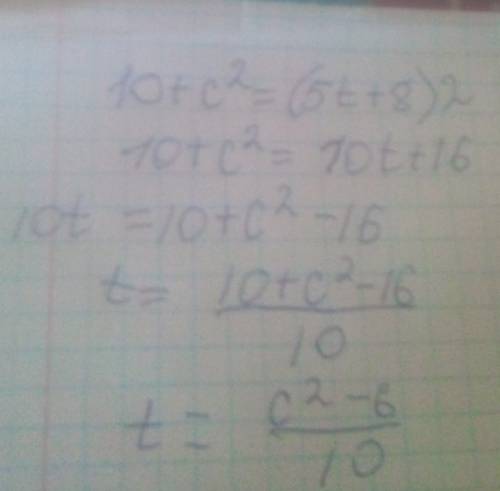 10+c²=(5t+8)2
10+c²= 10t+16
10t =10+c²-16
t= \frac{10+c²-16}{10}
t= \frac{c²-6}{10}